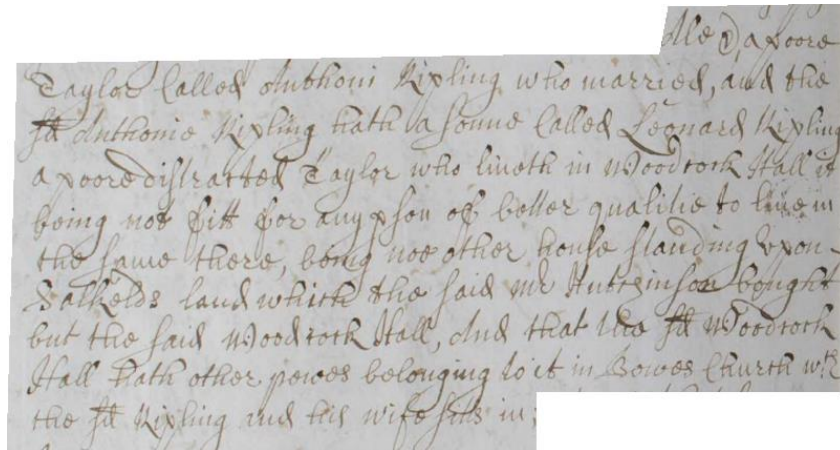 a poore
Taylor Called Anthoni Kipling who married, and the
sd Anthonie Kipling hath a sonne Called Leonard Kipling
a poore distracted Taylor who liveth in Woodcock Hall it
being not fitt for any pson of better qualitie to live in
the same there, being noe other house standing vpon
Salkelds land which the said Mr Hutchinson bought
but the said Woodcock Hall, And that the sd Woodcock
Hall hath other pewes belonging to it in Bowes Church wch
the sd Kipling and his wife sitts in